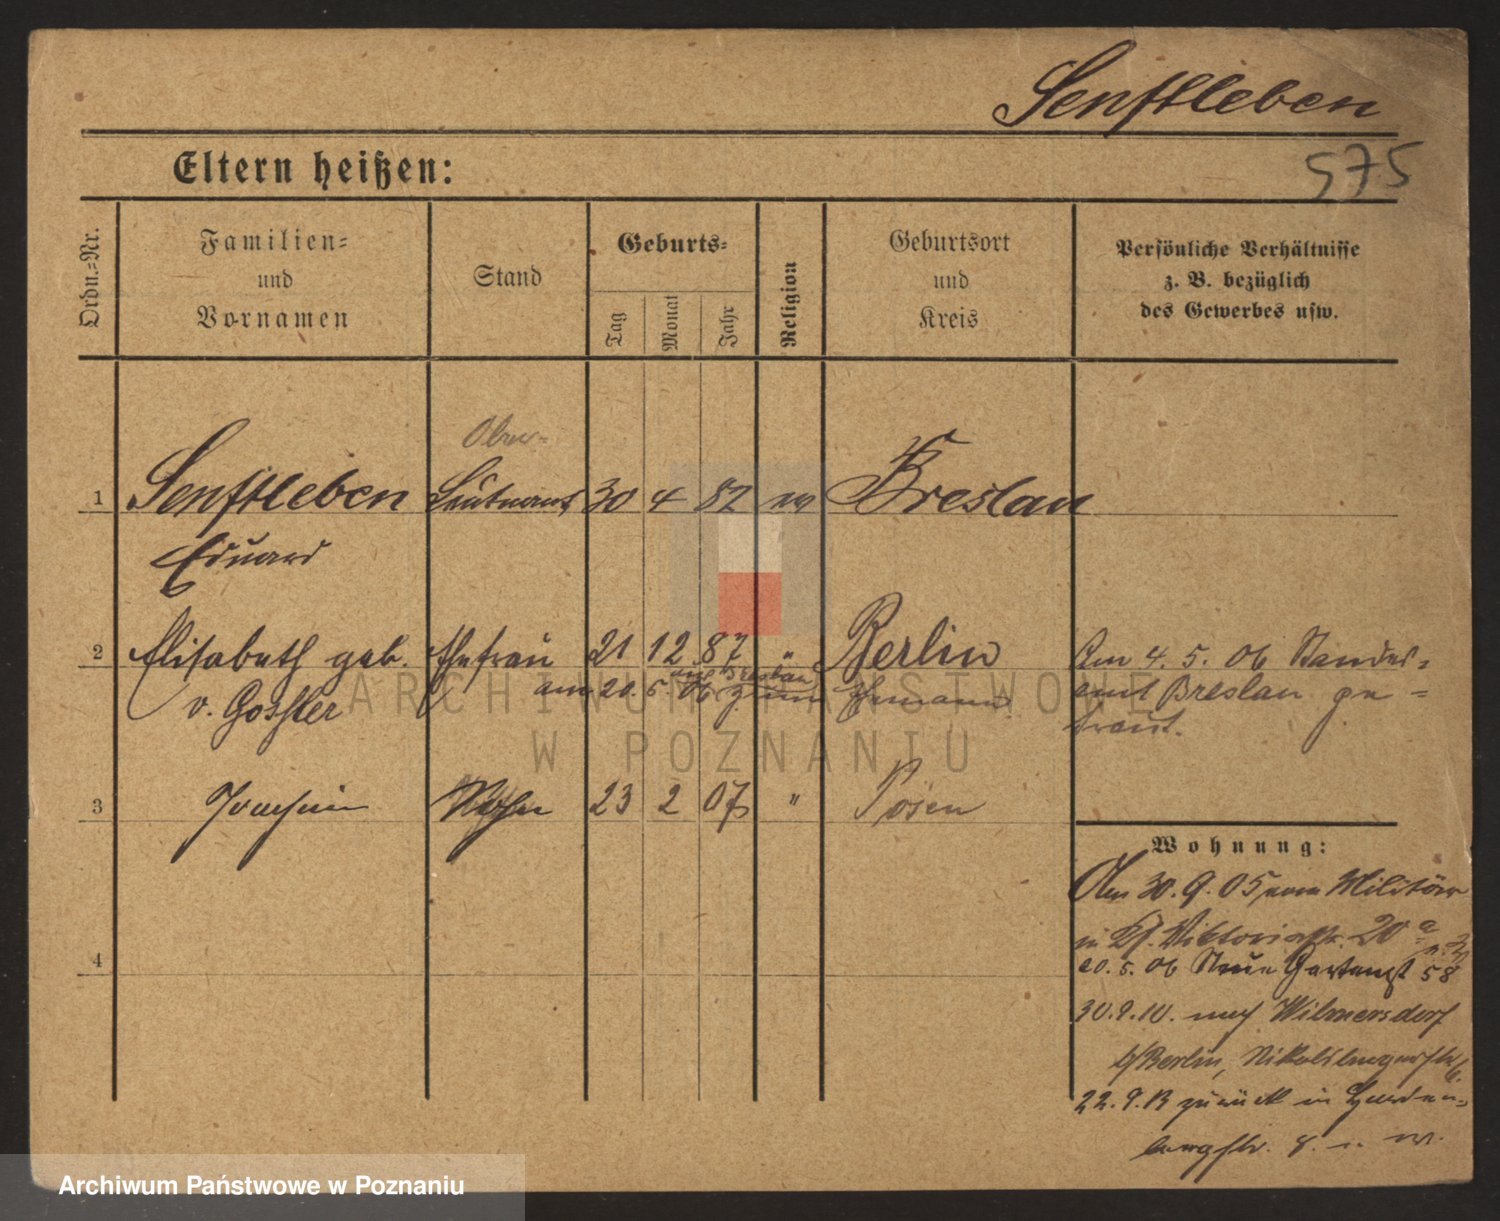 Senftleben
575
Eltern heißen:
Ordn.=Nr.
Familien=
und
Vornamen
Stand
Geburts=
Tag
Monat
Jahr
Religion
Geburtsort
und
Kreis
Persönliche Verhältnisse
z. B. bezüglich
des Gewerbes usw.
Ober-
1 Senftleben Leutnant 30 4 82 Breslau
Eduard
2 Elisabeth geb. Ehefrau 21 12 87 " Berlin
v. Gossler
am 20. 5. 06 aus Breslau zum Ehemann
Am 4. 5. 06 Standes=
amt Breslau ge=
traut.
3 Joachim Sohn 23 2 07 " Posen
4
Wohnung:
Am 30. 9. 05 vom Militär
in Viktoriastr. 20 a
20. 5. 06 Neue Gartenst 58
30. 9. 10. nach Wilmersdorf
b/Berlin,
22. 9. 13 zurück in Harden-
bergstr. 8.
ARCHIWUM PAŃSTWOWE
W POZNANIU
Archiwum Państwowe w Poznaniu